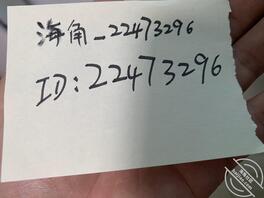 海角_22473296
ID:22473296